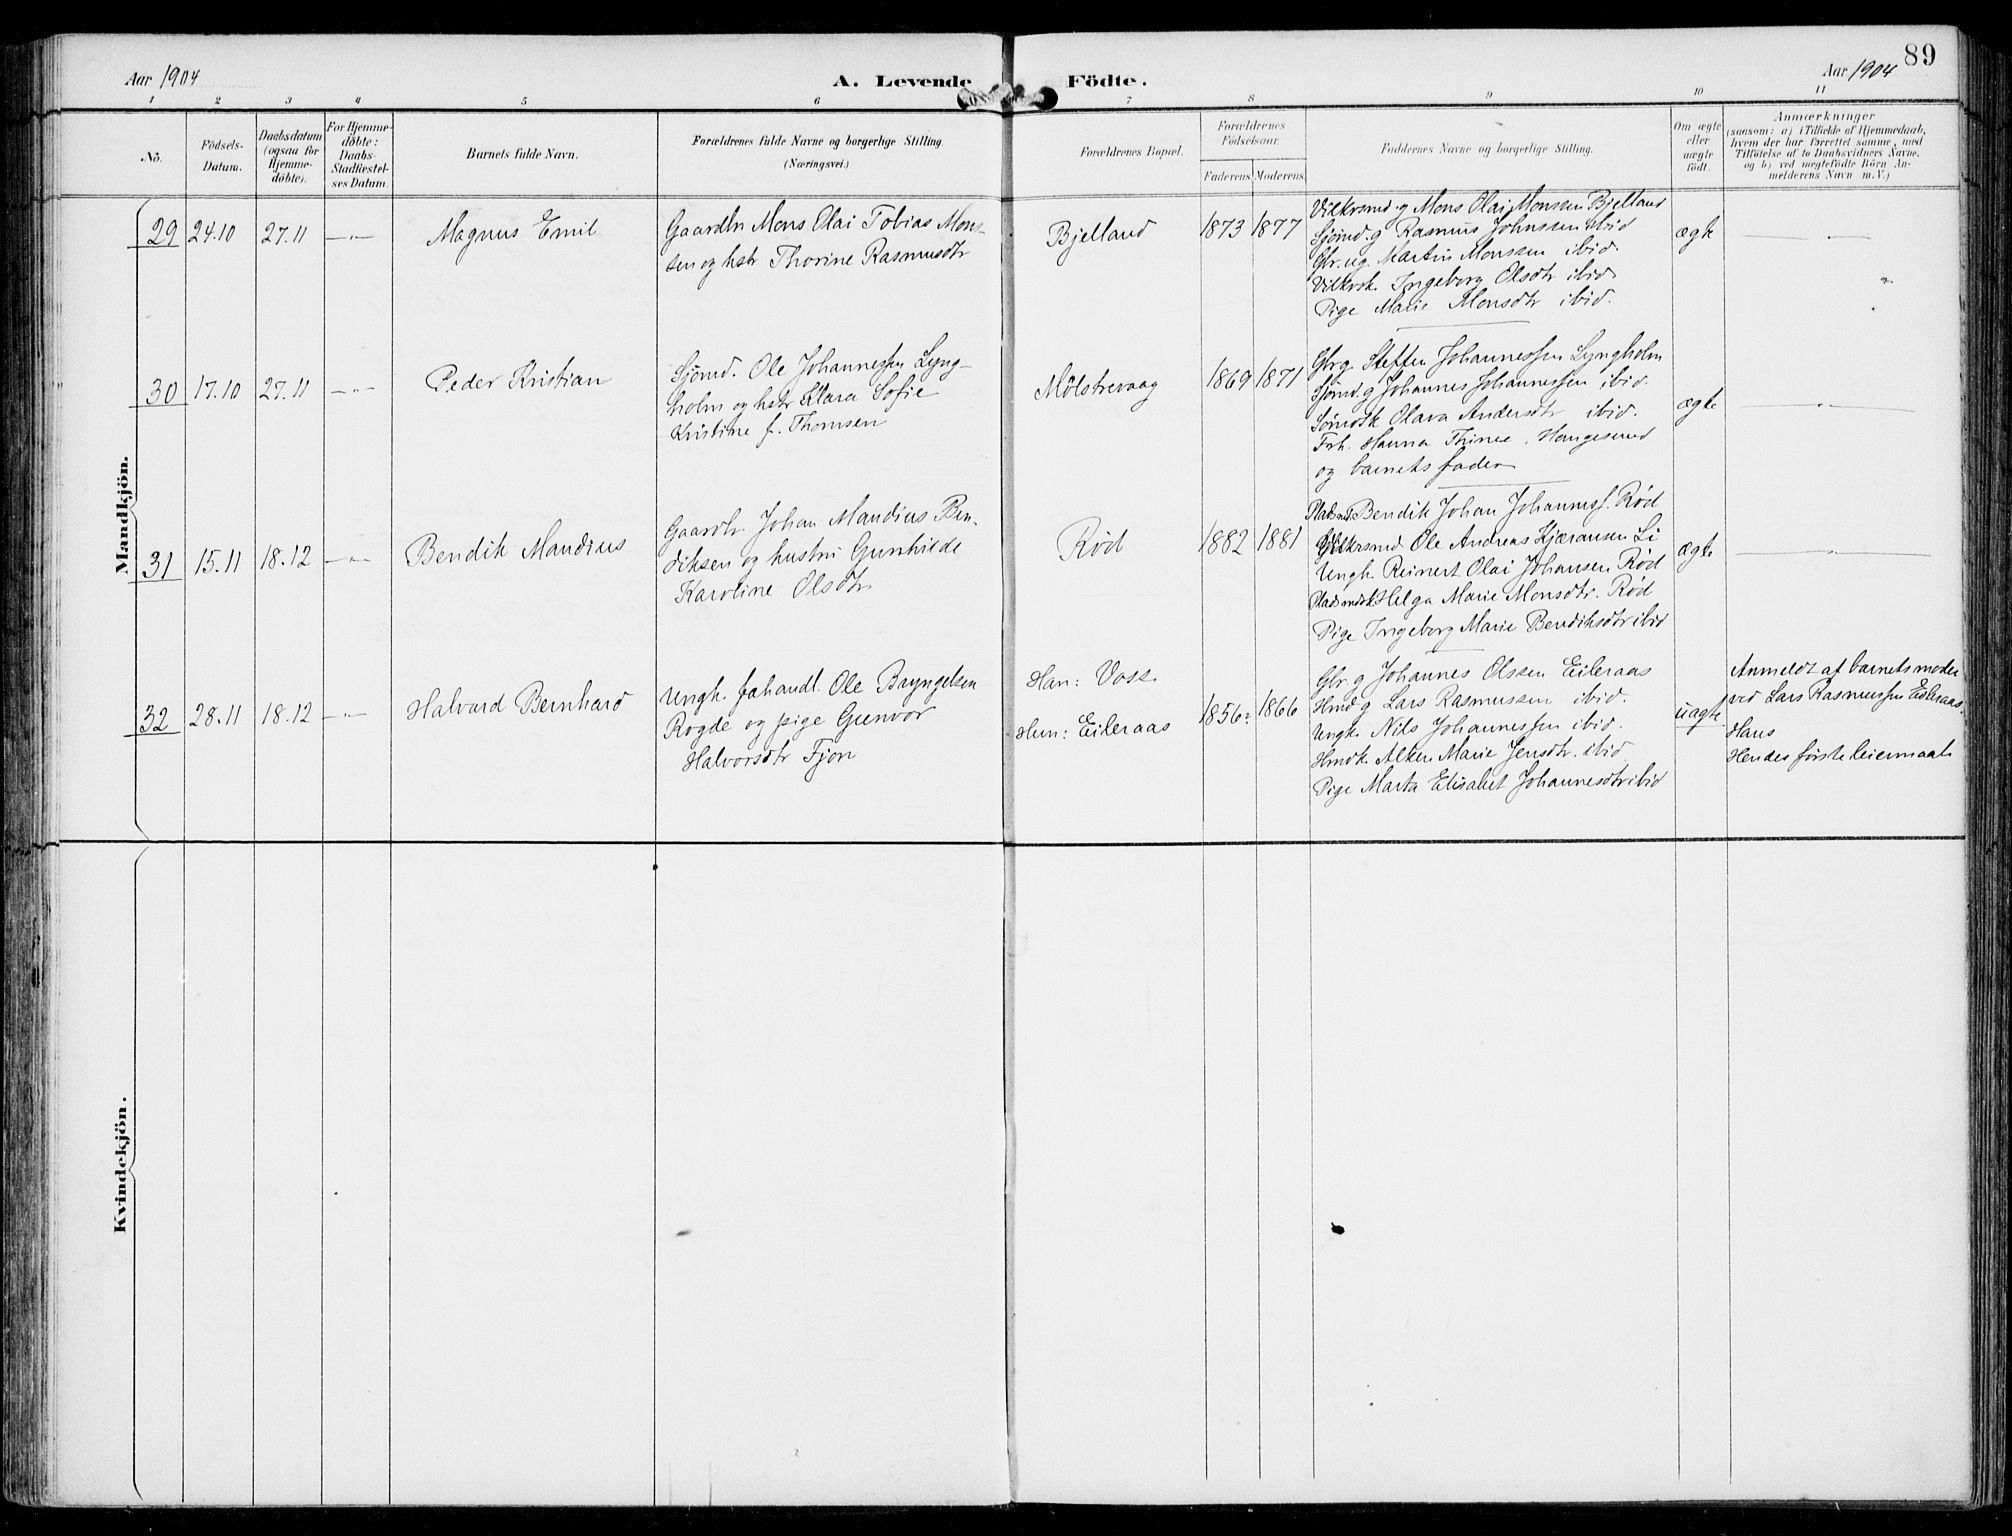 89
Aar 1904
A. Levende Födte.
Aar 1904
1 2 3 4 5 6 7 8 9 10 11
No.
Födsels-
Datum.
Daabsdatum
(ogsaa for
Hjemme-
döbte).
For Hjemme-
döbte:
Daabs-
Stadfæstel-
ses Datum.
Barnets fulde Navn.
Forældrenes fulde Navne og borgerlige Stilling.
(Næringsvei.)
Forældrenes Bopæl.
Forældrenes
Födselsaar.
Faderens. Moderens.
Faddernes Navne og borgerlige Stilling.
Om ægte
eller
uægte
födt.
Anmærkninger
(saasom: a) i Tilfælde af Hjemmedaab,
hvem der har forrettet samme, med
Tilföielse af to Daabsvidners Navne,
og b) ved uægtefödte Börn An-
melderens Navn m.V.)
Mandkjön.
29
24.10
27.11
—"—
Magnus Emil
Gaardbr Mons Olai Tobias Mon-
sen og hstr Thorine Rasmusdtr
Bjelland
1873 1877
Vilkrsmd. g Mons Olai Monsen Bjelland
Sjömd. g Rasmus Johnssen ibid
Gbr. ug. Martin Monssen ibid.
Vilkrsk. Ingeborg Olsdtr ibid
Pige Marie Monsdtr ibid.
ægte
—"—
30
17.10
27.11
—"—
Peder Kristian
Sjömd. Ole Johannessen Lyng-
holm og hstr Klara Sofie
Kristine f. Thomsen
Mølstrevaag
1869 1871
Gbr g Steffen Johannessen Lyngholm
Sjömd. g Johannes Johannessen ibid.
Sömdsk Olava Andersdtr ibid.
Frk. Hanna Haugesund
og barnets fader
ægte
—"—
31
15.11
18.12
—"—
Bendik Mandius
Gaardbr Johan Mandius Ben-
diksen og hustru Gunhilde
Karoline Olsdtr
Rød
1882 1881
Bendik Johan Johanness. Rød
Vilkrsmd Ole Andreas Kjæransen Li
Ungk. Reinert Olai Johansen Rød
Pladsmdsk Helga Marie Monsdtr. Rød
Pige Ingeborg Marie Bendiksdtr ibid
ægte
—"—
32
28.11
18.12
—"—
Halvard Bernhard
Ungk. fæhandl. Ole Bryngelsen
Rogde og pige Gunvor
Halvorsdtr Fjon
Han: Voss.
Hun: Eileraas
1856: 1866
Gbr g Johannes Olssen Eileraas
Hmd g Lars Rasmussen ibid.
Ungk. Nils Johannessen ibid.
Hmdk Alken Marie Jensdtr. ibid
Pige Marta Elisabet Johannesdtr ibid
uægte
Anmeldt af barnets moder
ved Lars Rasmussen Eileraas.
Hans
Hendes förste leiermaal
Kvindekjön.